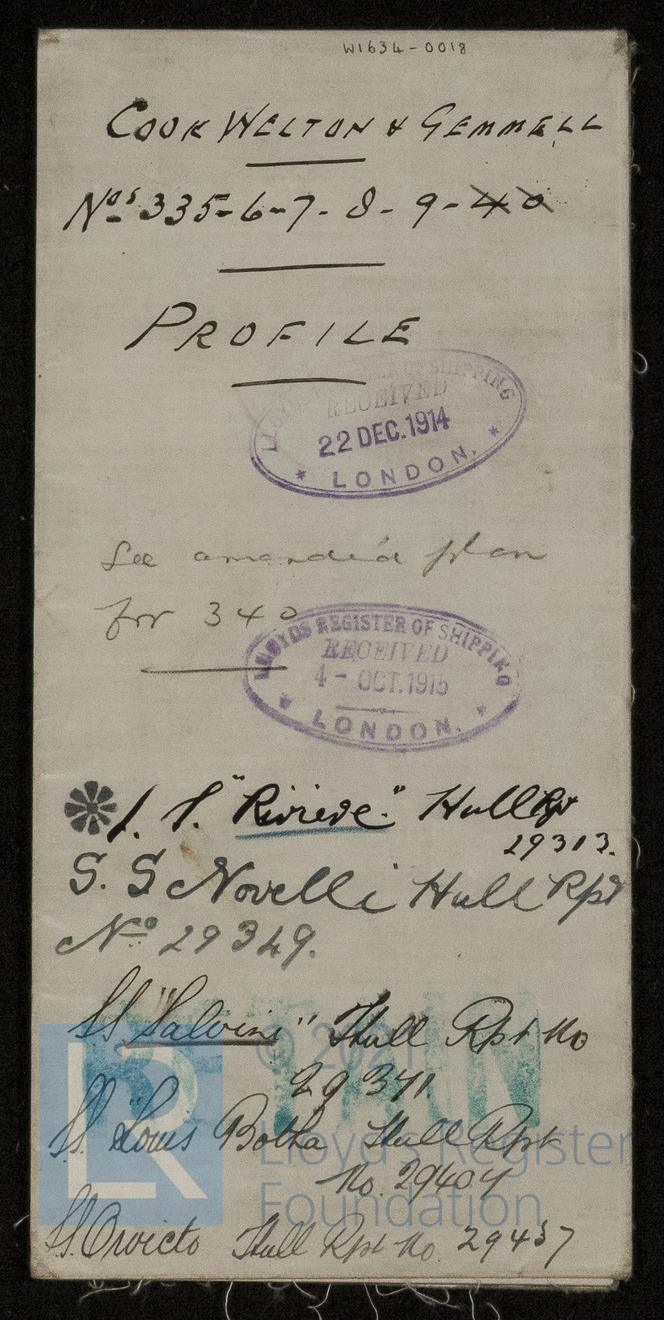 W1634-0018
COOK WELTON & GEMMELL
Nos 335-6-7-8-9-40
PROFILE
LLOYDS REGISTER OF SHIPPING
RECEIVED
22 DEC.1914
* LONDON. *
See amended plan
for 340
LLOYDS REGISTER OF SHIPPING
RECEIVED
4- OCT.1915
* LONDON. *
S. S. "Riviere" Hull Rpt
29313.
S. S Novelli Hull Rpt
No 29349.
SS "Salvini" Hull Rpt No
29371
SS. "Louis Botha Hull Rpt
No. 29404
SS. Orvicto Hull Rpt No. 29437
© 2021
LR
Lloyd's Register
Foundation